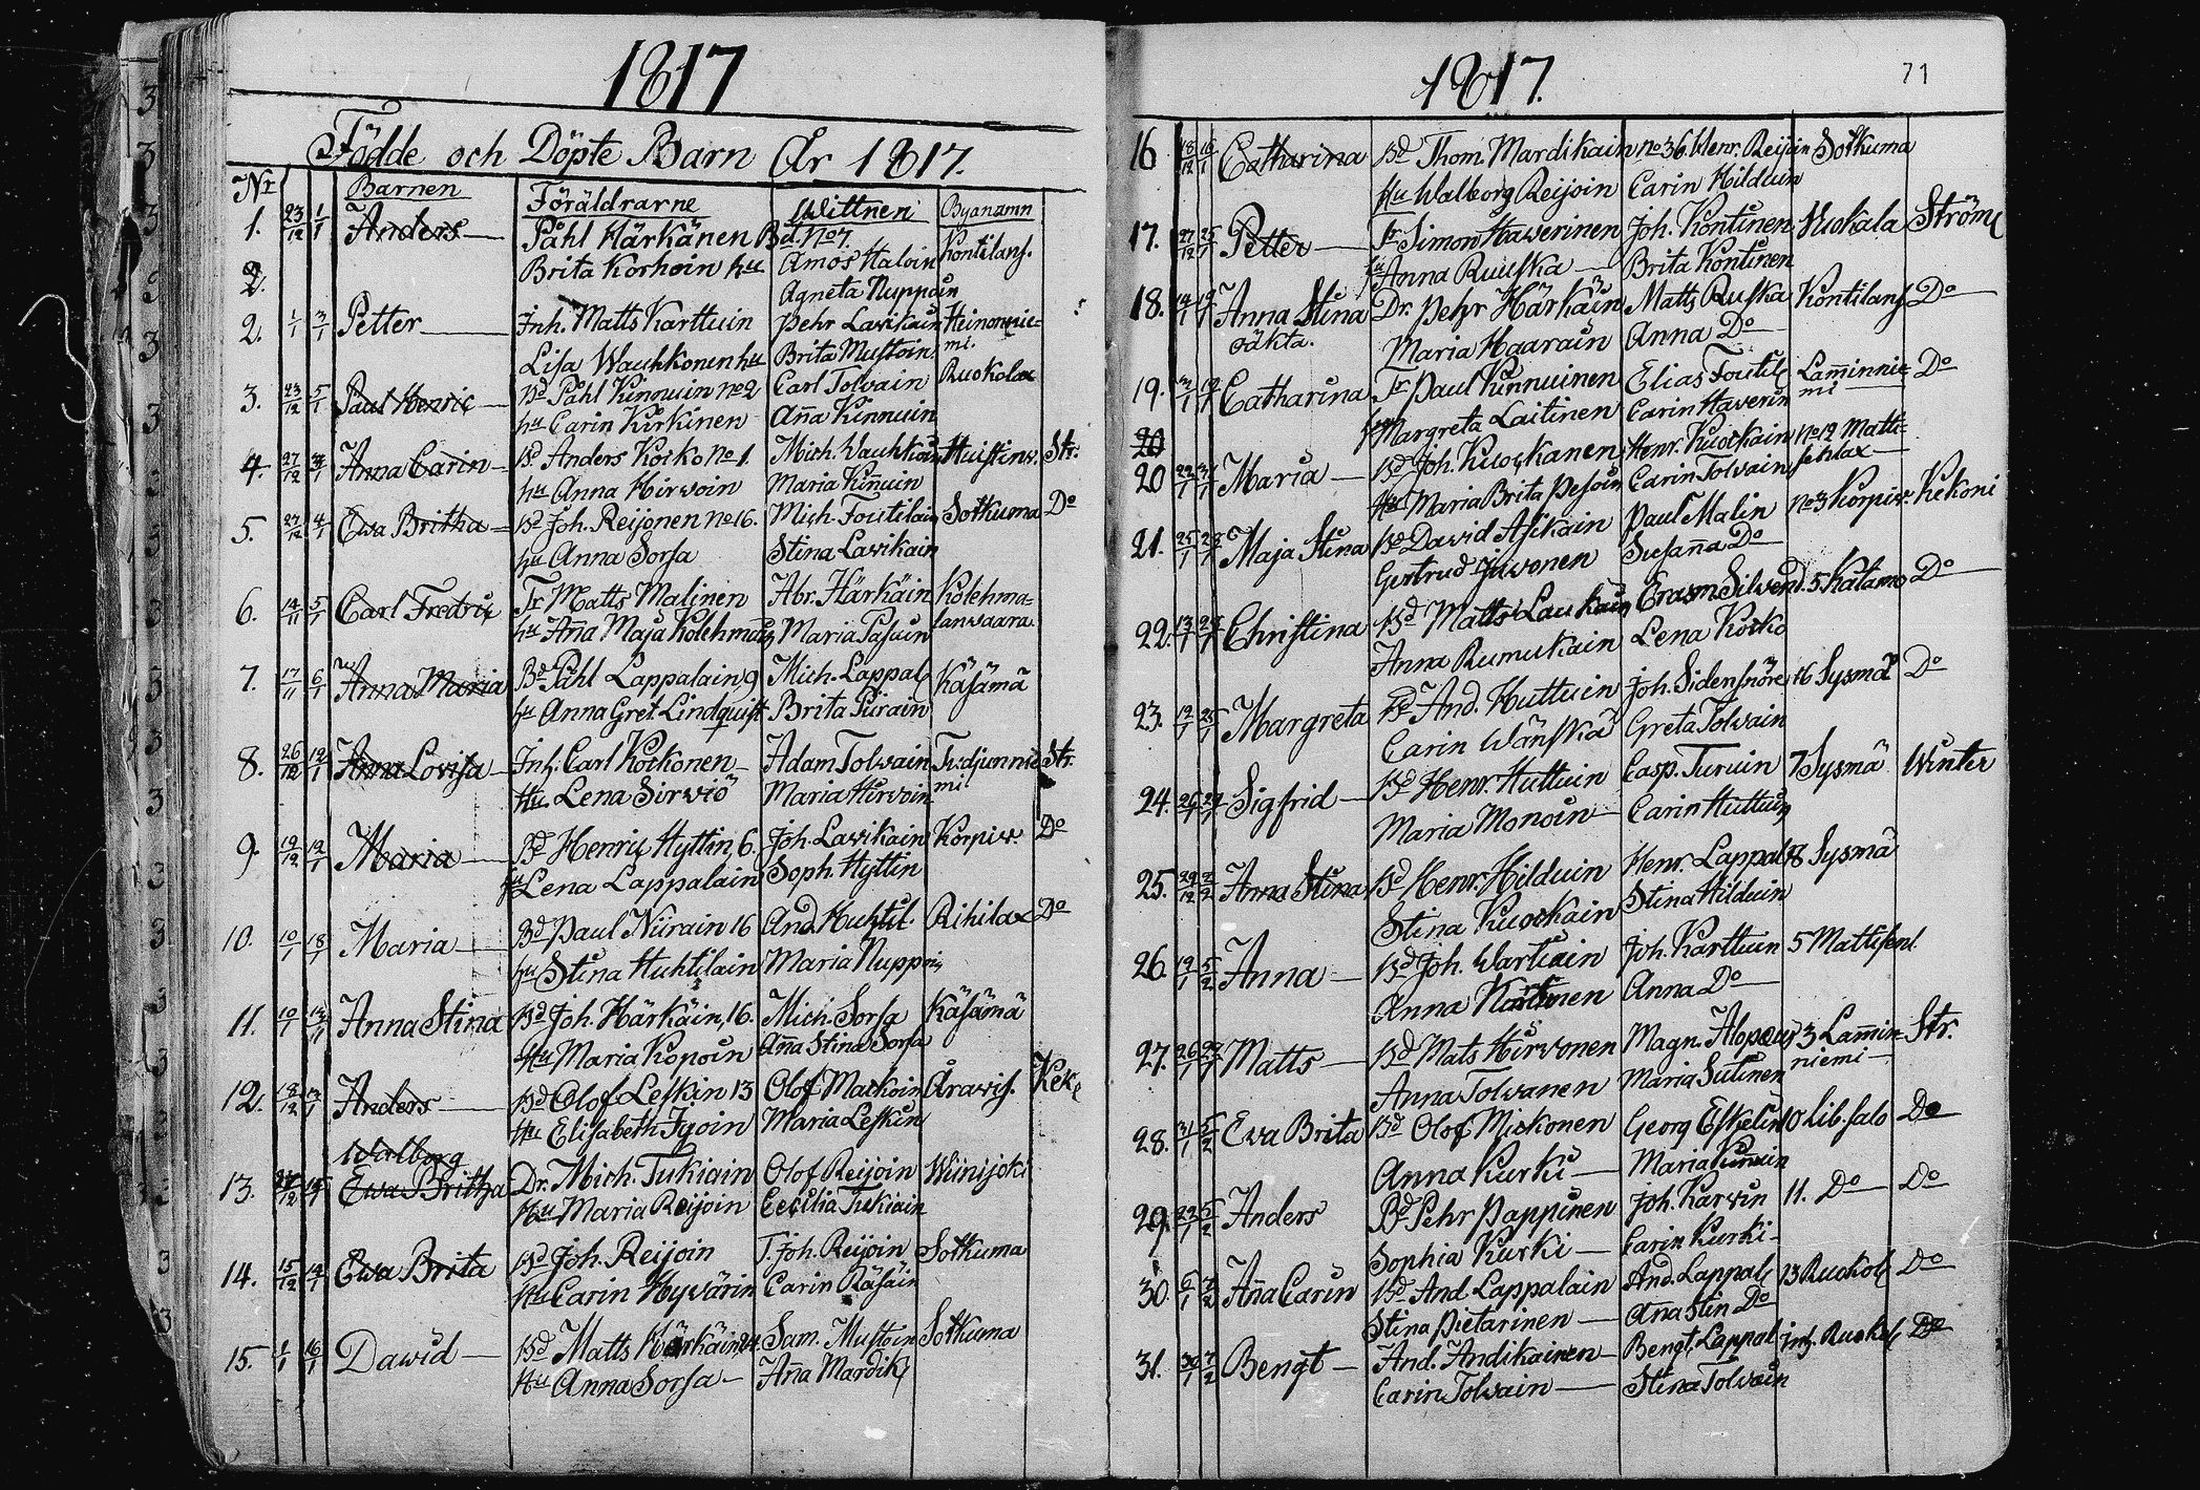 1817
Födde och Döpte Barn År 1817.
Nr Barnen Föräldrarne Wittnen Byanamn
1. 23/12 1/1 Anders Påhl Härkänen Bd. No 7. Amos Haloin Kontilans.
2. Brita Korhoin hu Agneta Nuppoin
2. 1/1 3/1 Petter Inh. Matts Karttuin Pehr Lavikain Heinonnie=
Lisa Wauhkonen hu Brita Mustoin mi.
3. 23/12 5/1 Paul Henric Bd Påhl Kinnuin No 2 Carl Tolvain Ruokolax
hu Carin Kirkinen Aña Kinnuin
4. 27/12 Anna Carin Bd Anders Koiko No 1. Mich. Wauhkoin Str.
hu Anna Hirvoin Maria Kiñuin
5. 27/12 4/1 Ewa Britha Bd Joh. Reijonen No 16. Mich. Foutilain Sotkuma Do
hu Anna Sorsa Stina Lavikain
6. 14/11 5/1 Carl Fredric Tr Matts Malinen Abr. Härkäin Kolehma=
hu Aña Maja Kolehmain Maria Pasuin lanvaara
7. 17/11 6/1 Anna Maria Bd Påhl Lappalain, 9 Mich. Lappal Käsämä
hu Anna Gret. Lindquist Brita Piirain
8. 26/12 12/1 Anna Lovisa Inh. Carl Kockonen Adam Tolvain Str.
Hu. Lena Sirviö Maria Hirvoin mi
9. 19/12 12/1 Maria Bd Henric Hyttin, 6. Joh. Lavikain Korpiv. Do
hu Lena Lappalain Soph. Hyttin
10. 10/1 18/1 Maria Bd Paul Niirain 16 And. Huhtil. Rihilax Do
hu Stina Huhtilain Maria Nuppoin
11. 10/1 Anna Stina Bd Joh. Härkäin, 16. Mich. Sorsa Käsämä
Hu Maria Kopoin Aña Stina Sorsa
12. 18/12 Anders Bd Olof Leskin 13 Olof Matkoin Aravis. Kek
Hu Elisabeth Ijoin Maria Leskin
Walborg
13. Ewa Britha Dr. Mich. Tukiain Olof Reijoin Wiinijoki
Hu Maria Reijoin Cecilia Tukiain
14. 15/12 14/1 Ewa Brita Bd Joh. Reijoin T. Joh. Reijoin Sotkuma
Hu Carin Hyvärin Carin Räsäin
15. 1/1 16/1 Dawid Bd Matts Härkäin, 24. Sam. Mustoin Sotkuma
Hu Anna Sorsa Aña Mardik
1817. 71
16 18/12 16/1 Catharina Bd Thom. Mardikain No 36. Henr. Reijoin Sotkuma
Hu Walborg Reijoin Carin Hilduin
17. 27/12 25/1 Petter Tr Simon Haverinen Joh. Kontinen Kuokala Ström
hu Anna Ruuska Brita Kontinen
18. 14/1 19/1 Anna Stina Dr. Pehr Härkäin Matts Ruska Kontilans Do
oäkta. Maria Haarain Anna Do
19. Catharina Tr Paul Kinnuinen Elias Foutil Laminnie= Do
hu Margreta Laitinen Carin Haverin mi
20
20 Maria Bd Joh. Kuockanen Henr. Kuockain No 12 Matti=
Hu Maria Brita Pesoin Carin Tolvain sehlax
21. 25/1 28/1 Maja Stina Bd David Asikain Paul Malin No 3 Korpiv. Kekoni
Gertrud Jivonen Susaña Do
22. Christina Bd Matts Laukain Erasm Silvend. 5 Katamo Do
Anna Rumukain Lena Koiko
23. 19/1 25/1 Margreta Bd And. Huttuin Joh. Sidensnöre 16 Sysmä Do
Carin Wänskä Greta Tolvain
24. 26/1 27/1 Sigfrid Bd Henr. Huttuin Casp. Turuin 7 Sysmä Winter
Maria Monoin Carin Huttuin
25. 29/12 2/2 Anna Stina Bd Henr. Hilduin Henr. Lappal 18 Sysmä
Stina Kuockain Stina Hilduin
26. 19/1 5/2 Anna Bd Joh. Wartiain Joh. Karttuin 5 Mattisenl.
Anna Anna Do
27. Matts Bd Mats Hirvonen Magn. Alopæus 3 Lamin= Str.
Anna Tolvanen Maria Sutinen niemi
28. 31/1 5/2 Eva Brita Bd Olof Mickonen Georg Eskelin 10 Lib. salo Do
Anna Kurki Maria Kiñuin
29. 5/2 Anders Bd Pehr Pappinen Joh. Karvin 11. Do Do
Sophia Kurki Carin Kurki
30. 6/1 7/2 Aña Carin Bd And. Lappalain And. Lappal 13 Ruokol Do
Stina Pietarinen Aña Stin Do
31. 30/1 7/2 Bengt And. Andikainen Bengt Lappal inh. Ruokol Do
Carin Tolvain Stina Tolvain